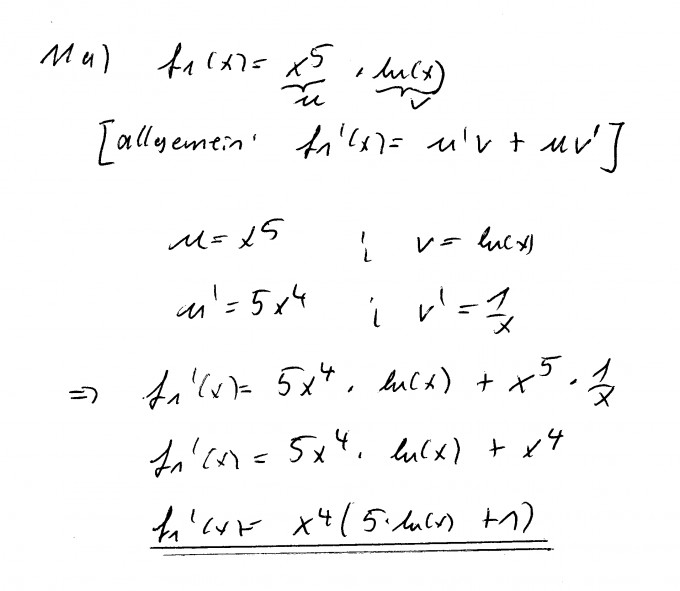 11a) f₁(x) = x⁵ · ln(x)
u v
[allgemein: f₁'(x) = u'v + uv']
u = x⁵ ; v = ln(x)
u' = 5x⁴ ; v' = 1/x
⇒ f₁'(x) = 5x⁴ · ln(x) + x⁵ · 1/x
f₁'(x) = 5x⁴ · ln(x) + x⁴
f₁'(x) = x⁴(5·ln(x) + 1)